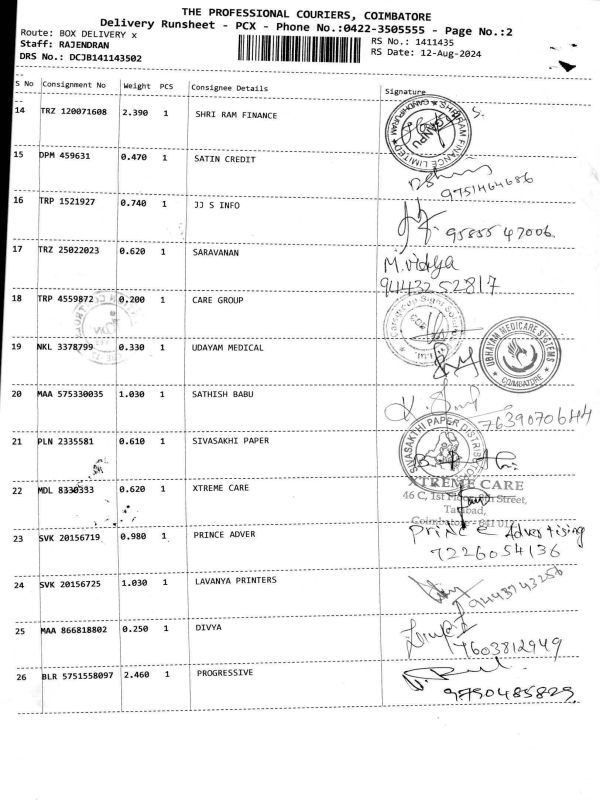 THE PROFESSIONAL COURIERS, COIMBATORE
Delivery Runsheet - PCX - Phone No.:0422-3505555 - Page No.:2
Route: BOX DELIVERY x
RS No.: 1411435
Staff: RAJENDRAN
RS Date: 12-Aug-2024
DRS No.: DCJB141143502
S No Consignment No Weight PCS Consignee Details Signature
14 TRZ 120071608 2.390 1 SHRI RAM FINANCE
SHRIRAM FINANCE LIMITED
15 DPM 459631 0.470 1 SATIN CREDIT
9751464686
16 TRP 1521927 0.740 1 JJ S INFO
95855 47006.
17 TRZ 25022023 0.620 1 SARAVANAN
M. vidya
9443252817
18 TRP 4559872 0.200 1 CARE GROUP
19 NKL 3378799 0.330 1 UDAYAM MEDICAL
UBHAYAM MEDICARE SYSTEMS
COIMBATORE
20 MAA 575330035 1.030 1 SATHISH BABU
21 PLN 2335581 0.610 1 SIVASAKHI PAPER
SIVASAKTHI PAPER
22 MDL 8330333 0.620 1 XTREME CARE
XTREME CARE
46 C, 1st Street,
23 SVK 20156719 0.980 1 PRINCE ADVER
Prince Advertising
7226054136
24 SVK 20156725 1.030 1 LAVANYA PRINTERS
9443743256
25 MAA 866818802 0.250 1 DIVYA
7603812949
26 BLR 5751558097 2.460 1 PROGRESSIVE
9790485829